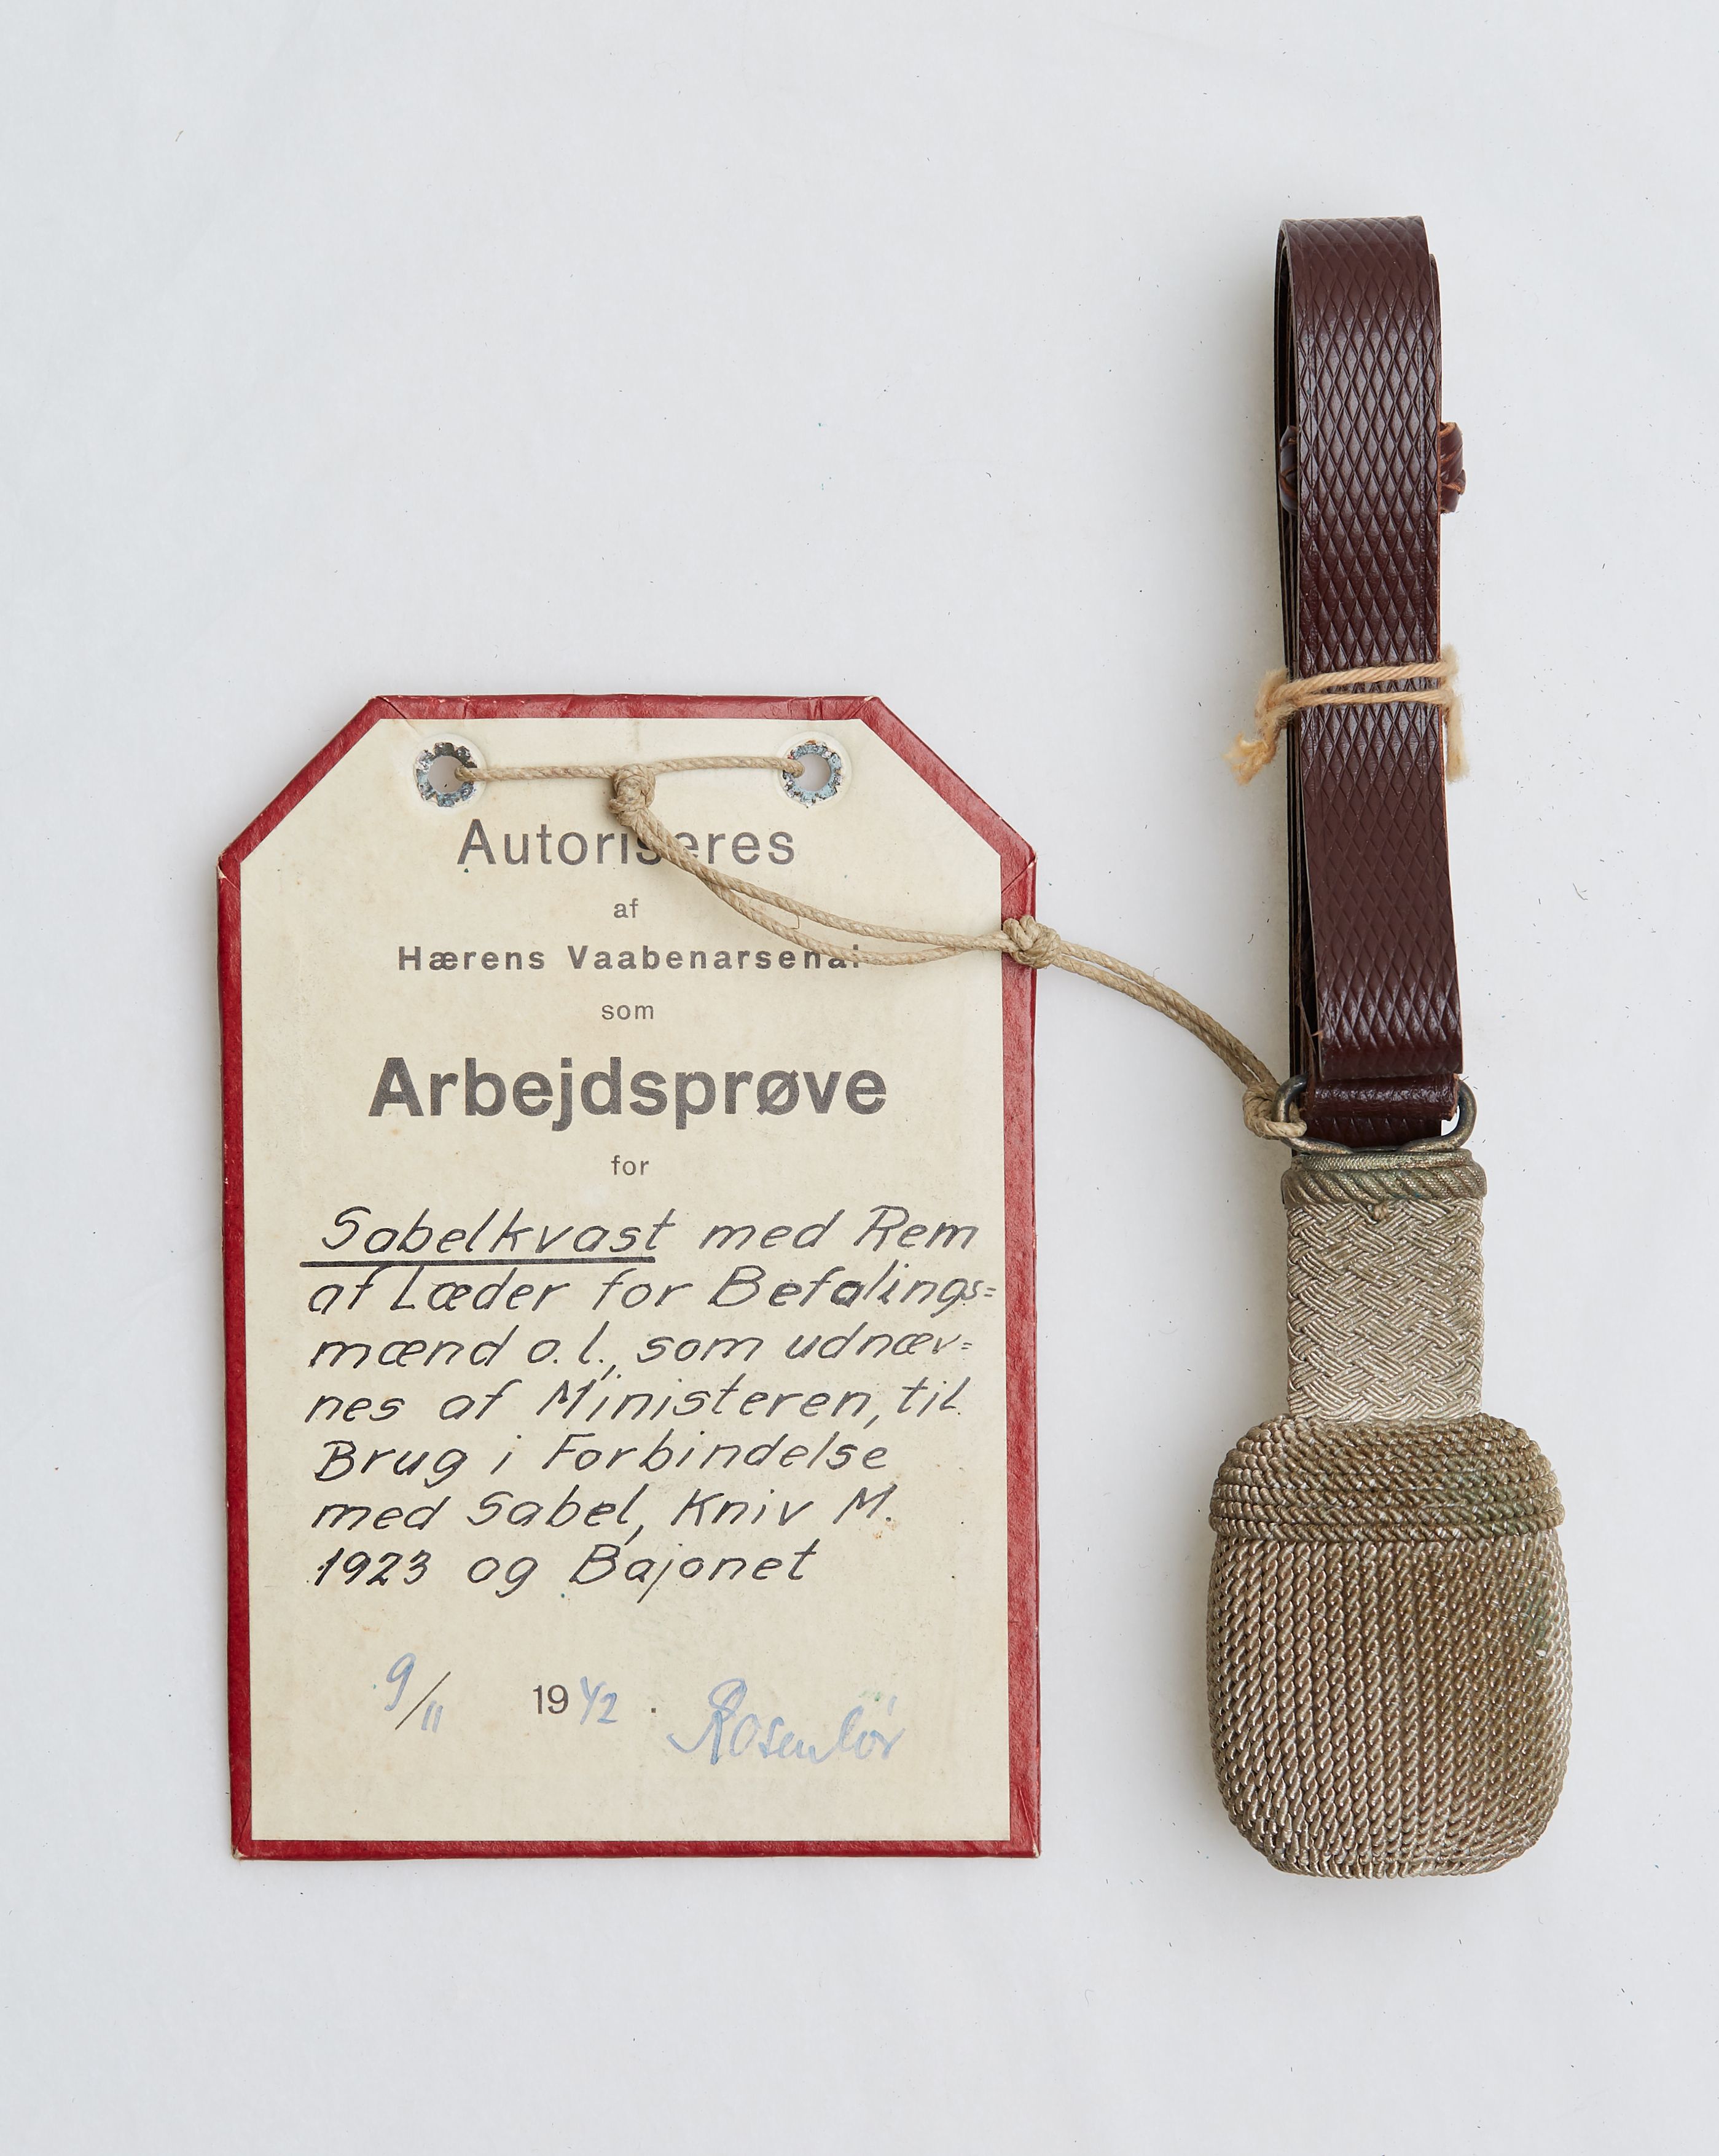 Autoriseres
af
Hærens Vaabenarsenal
som
Arbejdsprøve
for
Sabelkvast med Rem
af Læder for Befalings=
mænd o.l., som udnæv=
nes af Ministeren, til
Brug i Forbindelse
med Sabel, Kniv M.
1923 og Bajonet
9/11 1942.